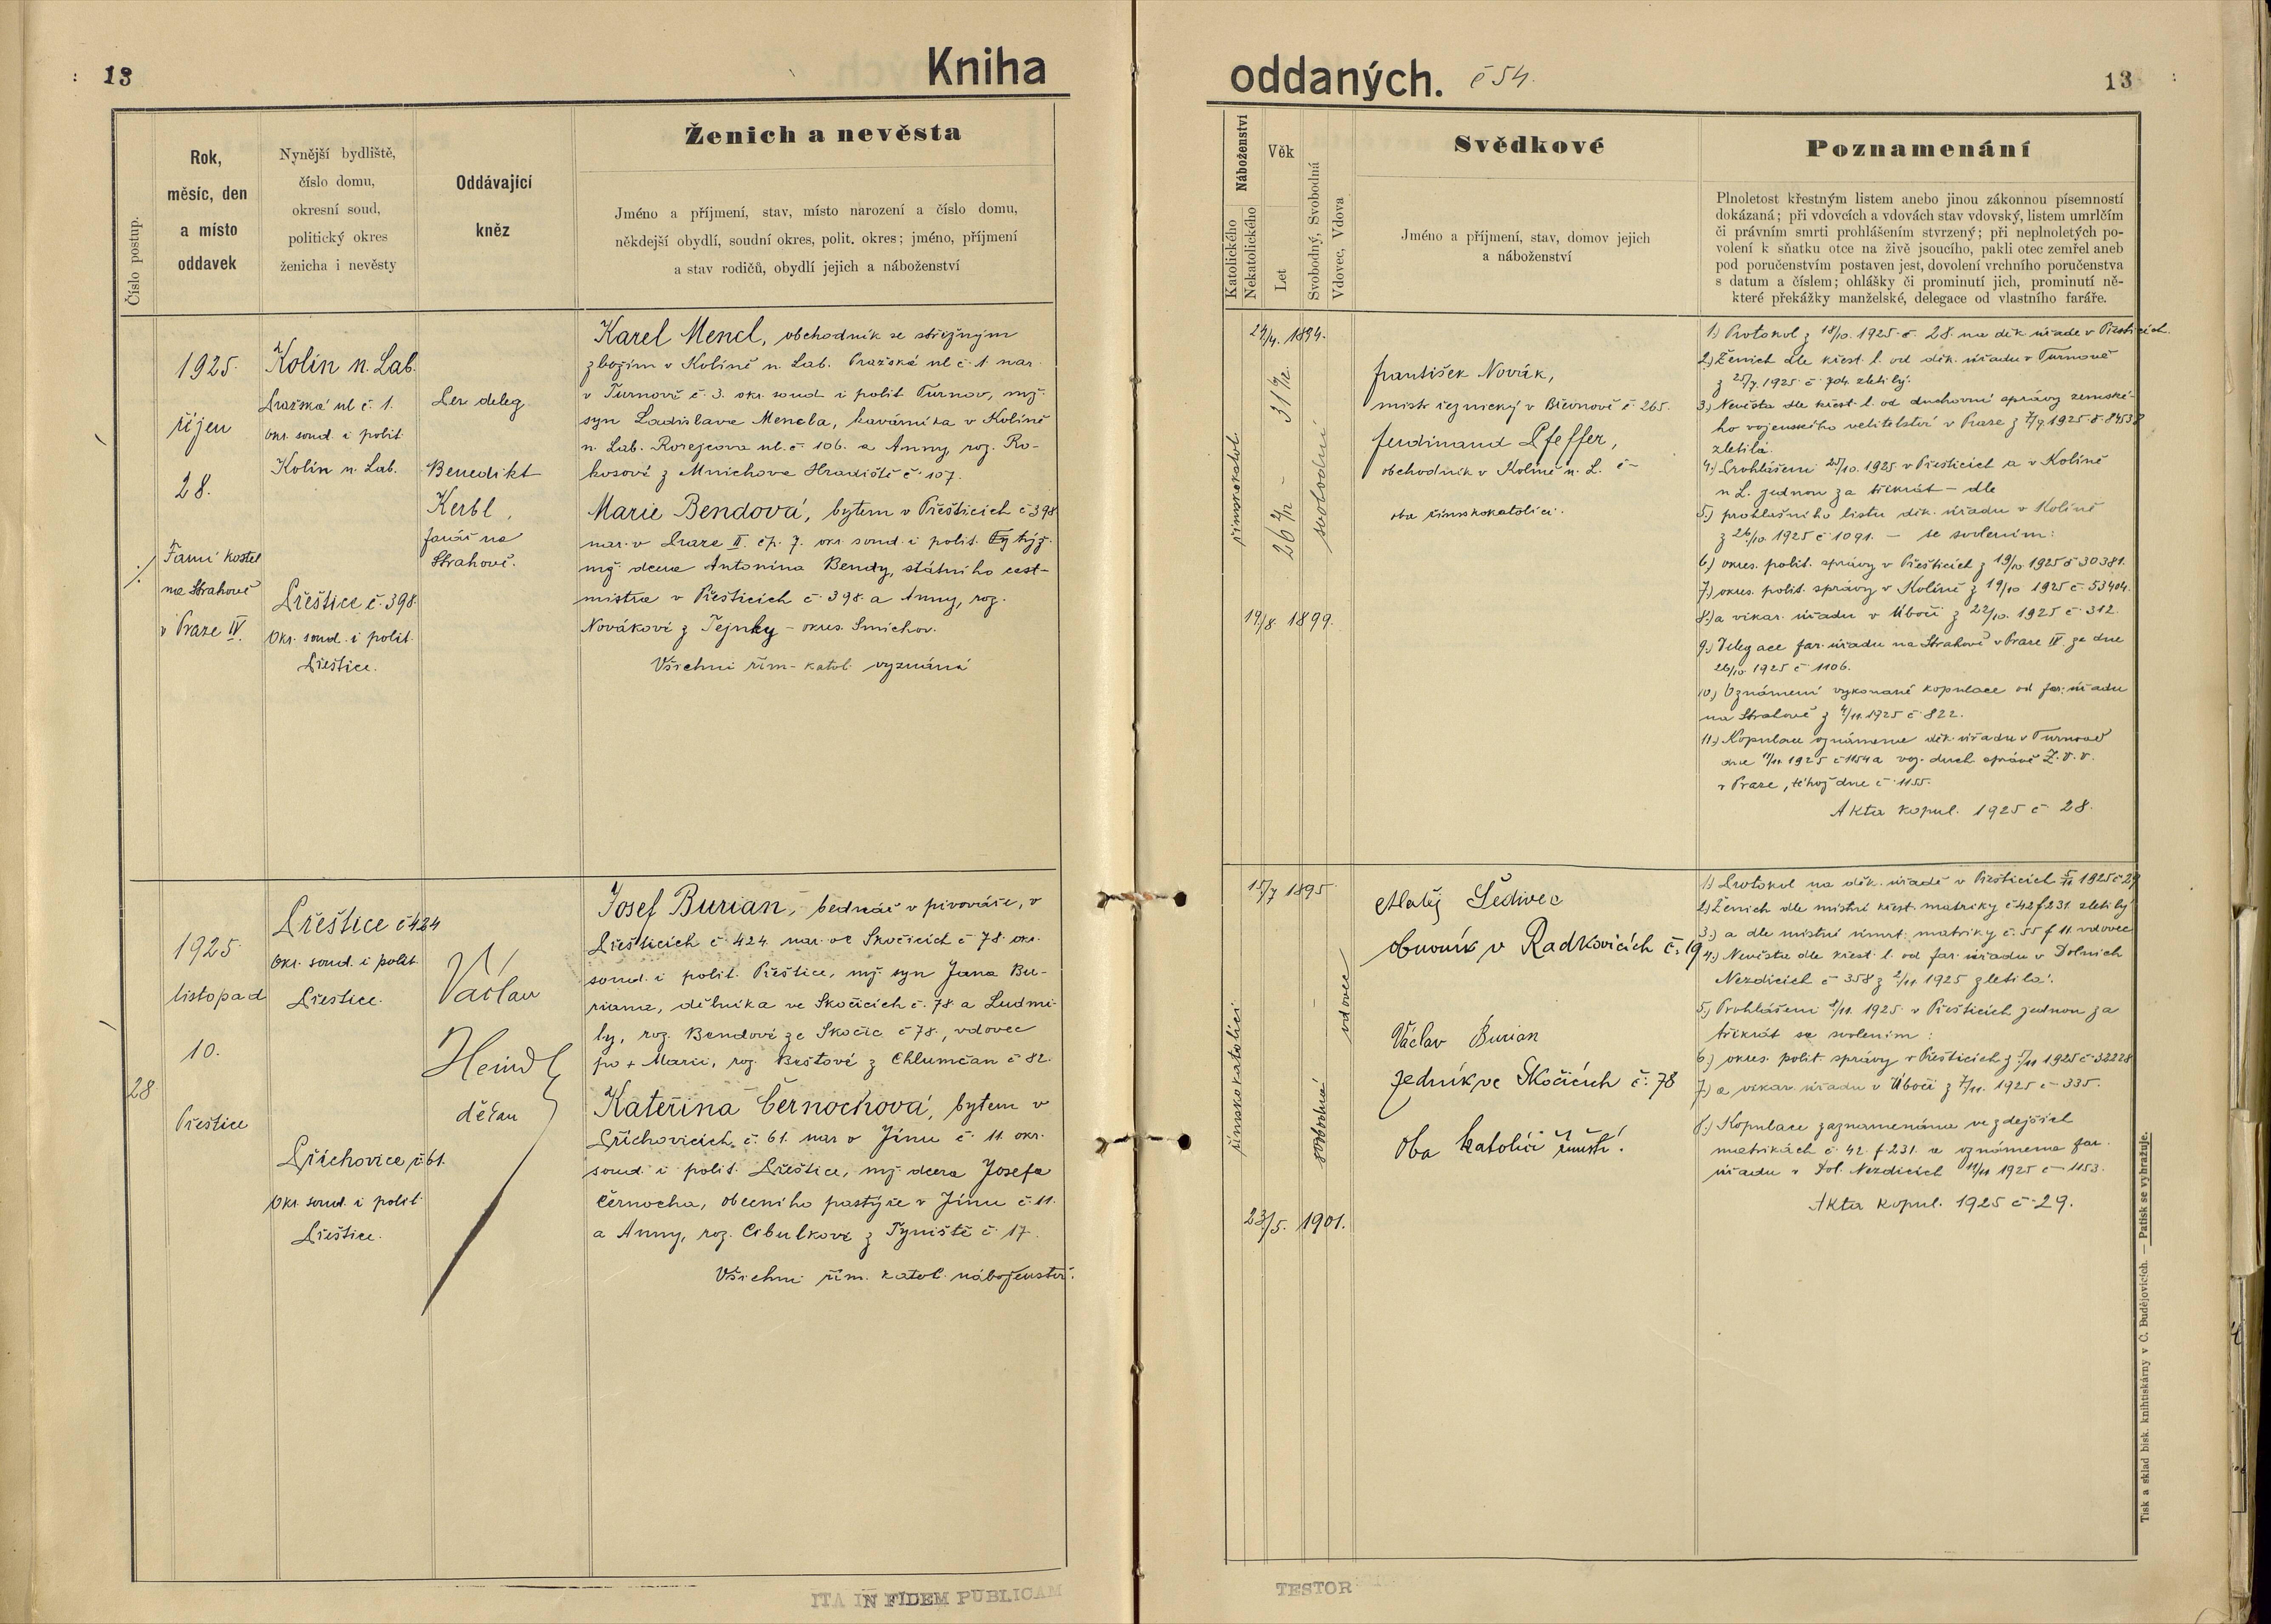 13
Kniha
Číslo postup.
Rok,
měsíc, den
a místo
oddavek
Nynější bydliště,
číslo domu,
okresní soud,
politický okres
ženicha i nevěsty
Oddávající
kněz
Ženich a nevěsta
Jméno a příjmení, stav, místo narození a číslo domu,
někdejší obydlí, soudní okres, polit. okres; jméno, příjmení
a stav rodičů, obydlí jejich a náboženství
1925.
říjen
28.
Farní kostel
na Strahově
v Praze IV.
Kolín n. Lab.
Pražská ul č. 1.
Okr. soud. i polit
Kolín n. Lab.
Přeštice č. 398.
Okr. soud. i polit.
Přeštice.
Per deleg.
Benedikt
Kerbl,
farář na
Strahově.
Karel Mencl, obchodník se střižným
zbožím v Kolíně n. Lab. Pražská ul č. 1. nar.
v Turnově č. 3. okr. soud i polit Turnov, mž.
syn Ladislava Mencla, kavárníka v Kolíně
n. Lab. Rorejcova ul. č. 106. a Anny, roz. Ro-
kosové z Mnichova Hradiště č. 107.
Marie Bendová, bytem v Přešticích č 398
nar. v Praze II. čp. 7. okr. soud. i polit. týž.
mž dcera Antonína Bendy, státního cest-
mistra v Přešticích č. 398. a Anny, roz.
Novákové z Tejnky - okres. Smíchov.
Všichni řím-katol. vyznání
28.
1925.
listopad
10.
Přeštice
Přeštice č 424
Okr. soud. i polit.
Přeštice.
Příchovice č 61.
Okr. soud. i polit.
Přeštice.
Václav
Heindl
děkan
Josef Burian, bednář v pivováře, v
Přešticích č. 424. nar. ve Skočicích č. 78. okr.
soud. i polit. Přeštice, mž. syn Jana Bu-
riana, dělníka ve Skočicích č. 78. a Ludmi-
ly, roz. Bendové ze Skočic č 78., vdovec
po + Marii, roz. Beštové z Chlumčan č 82.
Kateřina Černochová, bytem v
Příchovicích č. 61. nar v Jínu č. 11. okr.
soud. i polit. Přeštice, mž dcera Josefa
Černocha, obecního pastýře v Jínu č. 11.
a Anny, roz. Cibulkové z Týniště č. 17.
Všichni řím. katol. náboženství.
ITA IN FIDEM PUBLICAM
oddaných. č 54.
13
Náboženství
Katolického
Nekatolického
Věk
Let
Svobodný, Svobodná
Vdovec, Vdova
Svědkové
Jméno a příjmení, stav, domov jejich
a náboženství
Poznamenání
Plnoletost křestným listem anebo jinou zákonnou písemností
dokázaná; při vdovcích a vdovách stav vdovský, listem umrlčím
či právním smrti prohlášením stvrzený; při neplnoletých po-
volení k sňatku otce na živě jsoucího, pakli otec zemřel aneb
pod poručenstvím postaven jest, dovolení vrchního poručenstva
s datum a číslem; ohlášky či prominutí jich, prominutí ně-
které překážky manželské, delegace od vlastního faráře.
24/4. 1894.
římskokatol.
svobodní
19/8. 1899.
František Novák,
mistr řeznický v Břevnově č 265.
Ferdinand Pfeffer,
obchodník v Kolíně n. L. č-
oba římskokatolíci.
1.) Protokol z 18/10. 1925. č. 28. na děk. úřadě v Přešticích.
2.) Ženich dle křest. l. od děk. úřadu v Turnově
z 25/7. 1925. č. 704. zletilý.
3.) Nevěsta dle křest. l. od duchovní správy zemské-
ho vojenského velitelství v Praze z 7/9. 1925 č. 8453
zletilá.
4.) Prohlášeni 25/10. 1925. v Přešticích a v Kolíně
n L. jednou za třikrát - dle
5.) prohlašního listu děk. úřadu v Kolíně
z 26./10. 1925 č 1091. - se svolením:
6.) okres. polit. správy v Přešticích z 19/10 1925 č 30381.
7.) okres. polit. správy v Kolíně z 19/10 1925 č. 53404.
8.) a vikar. úřadu v Úboči z 22/10. 1925 č. 312.
9.) Delegace far. úřadu na Strahově v Praze IV. ze dne
26/10 1925 č 1106.
10.) Oznámení vykonané kopulace od far. úřadu
na Strahově z 4/11. 1925 č 822.
11.) Kopulace oznámena děk. úřadu v Turnově
dne 11/11. 1925 č 1154 a voj. duch správě Z. V. V.
v Praze, téhož dne č 1155.
Akta kopul. 1925 č 28.
15./7 1895.
římskokatolíci
vdovec
svobodná
23./5. 1901.
Matěj Šedivec
obuvník v Radkovicích č. 19
Václav Burian
zedník ve Skočicích č. 78
Oba katolíci římští.
1) Protokol na děk. úřadě v Přešticích 5/11 1925 č 29
2.) Ženich dle místní křest. matriky č 42 f 231. zletilý
3.) a dle místní úmrt. matriky č. 55 f 11. vdovec
4.) Nevěsta dle křest. l. od far. úřadu v Dolních
Nezdicích č 358 z 2/11. 1925 zletilá.
5.) Prohlášeni 8/11. 1925. v Přešticích jednou za
třikrát se svolením:
6.) okres. polit. správy v Přešticích z 5/11 1925 č. 32228
7.) a vikar. úřadu v Úboči z 7/11. 1925 č 335.
8.) Kopulace zaznamenána ve zdejších
matrikách č. 42. f 231. a oznámena far.
úřadu v Dol. Nezdicích 11/11 1925 č 1153.
Akta kopul. 1925 č 29.
TESTOR
Tisk a sklad bisk. knihtiskárny v Č. Budějovicích. — Patisk se vyhražuje.